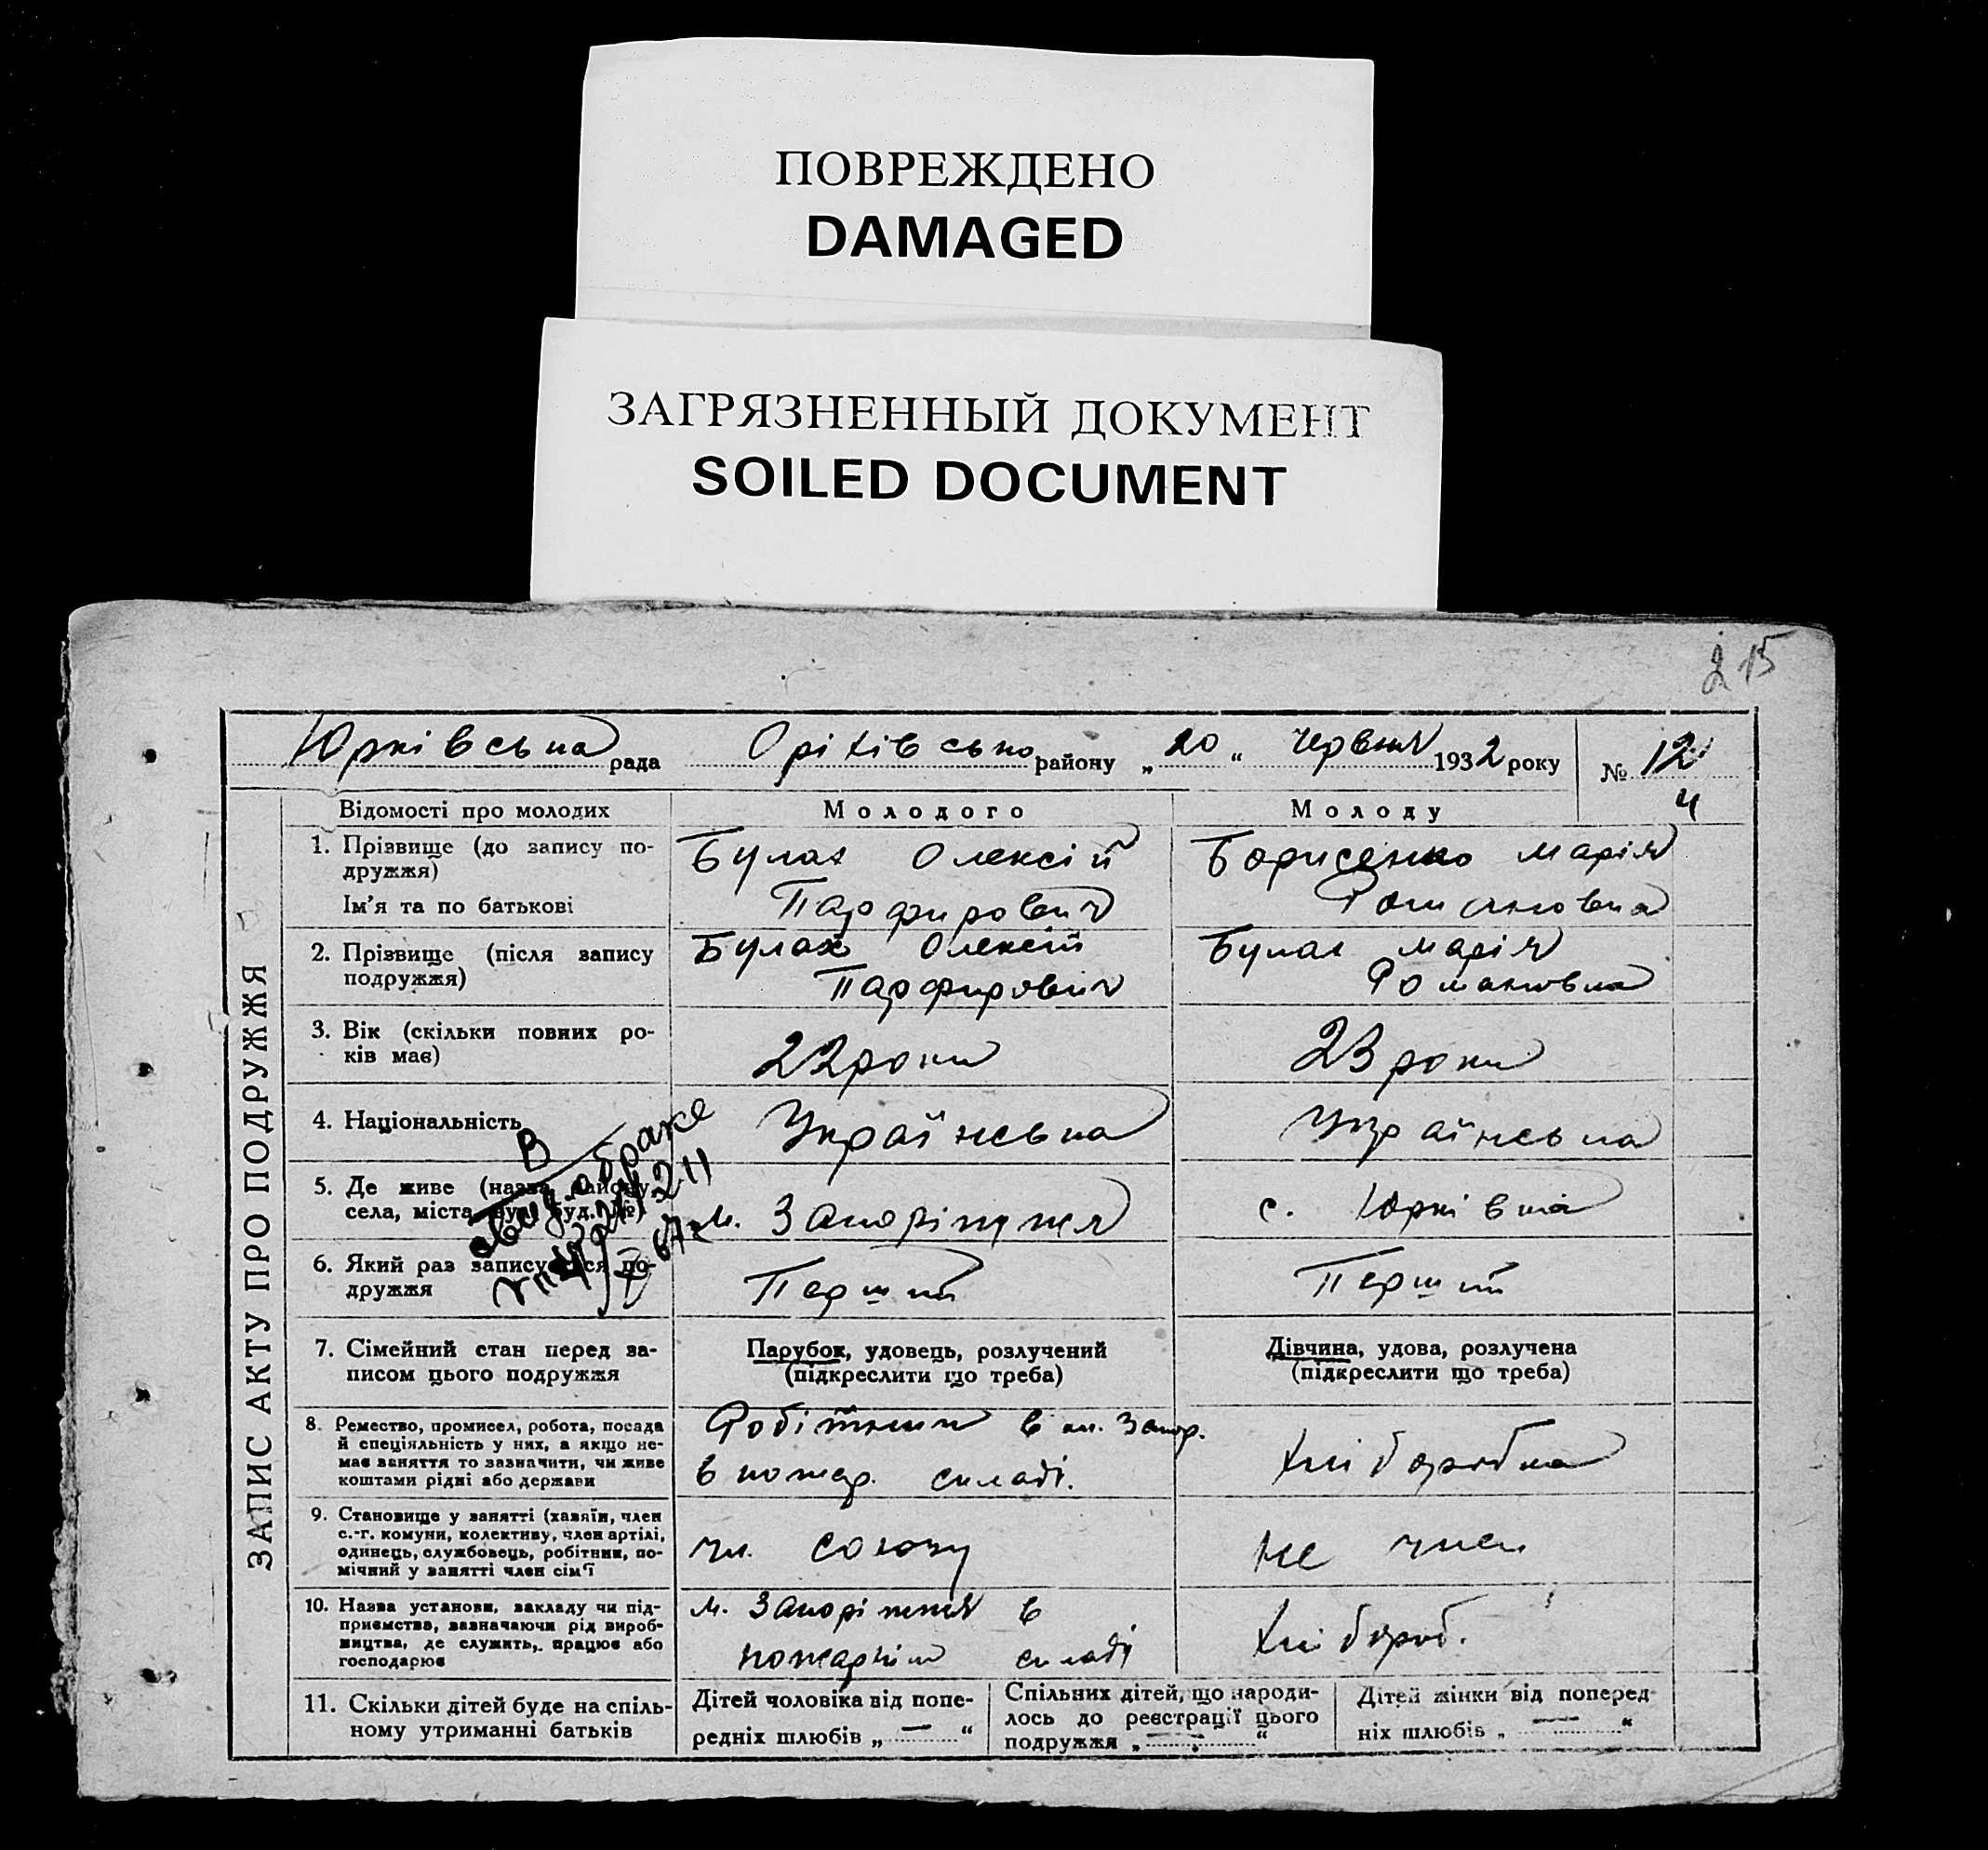 ПОВРЕЖДЕНО
DAMAGED
ЗАГРЯЗНЕННЫЙ ДОКУМЕНТ
SOILED DOCUMENT
215
Юрківська рада Оріхівсько району „20“ червня 1932 року № 12
ч
ЗАПИС АКТУ ПРО ПОДРУЖЖЯ
Відомості про молодих
Молодого
Молоду
1. Прізвище (до запису по-
дружжя)
Ім'я та по батькові
Булах Олексій
Парфирович
Борисенко Марія
Романовна
2. Прізвище (після запису
подружжя)
Булах Олексій
Парфирович
Булах Марія
Романовна
3. Вік (скільки повних ро-
ків має)
22 роки
23 роки
4. Національність
Українська
Українська
5. Де живе (назва району,
села, міста, вул. буд. №)
м. Запоріжжя
с. Юрківка
В
свид. о браке
6. Який раз записується по-
дружжя
Перший
Перший
7. Сімейний стан перед за-
писом цього подружжя
Парубок, удовець, розлучений
(підкреслити що треба)
Дівчина, удова, розлучена
(підкреслити що треба)
8. Ремество, промисел, робота, посада
й спеціяльність у них, а якщо не-
має заняття то зазначити, чи живе
коштами рідні або держави
Робітник в м. Запор.
в пожар. складі.
Хліборобка
9. Становище у занятті (хазяїн, член
с.-г. комуни, колективу, член артілі,
одинець, службовець, робітник, по-
мічний у занятті член сім'ї
чл. союзу
не член
10. Назва установи, закладу чи під-
приємства, зазначаючи рід вироб-
ництва, де служить, працює або
господарює
м. Запоріжжя в
пожарнім складі
Хлібороб.
11. Скільки дітей буде на спіль-
ному утриманні батьків
Дітей чоловіка від попе-
редніх шлюбів „ — “
Спільних дітей, що народи-
лось до реєстрації цього
подружжя „ — “
Дітей жінки від поперед-
ніх шлюбів „ — “